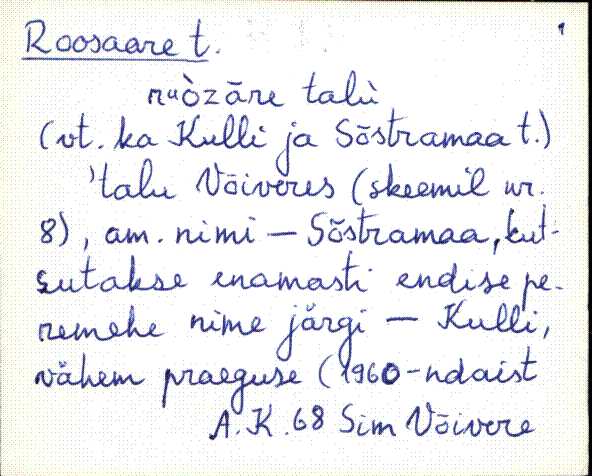 Roosaare t.
ruòzāre talù
(vt. ka Kulli ja Sõstramaa t.)
'talu Võiveres (skeemil nr.
8), am. nimi — Sõstramaa, kut-
sutakse enamasti endise pe-
remehe nime järgi — Kulli,
vähem praeguse (1960-ndaist
A.K. 68 Sim Võivere